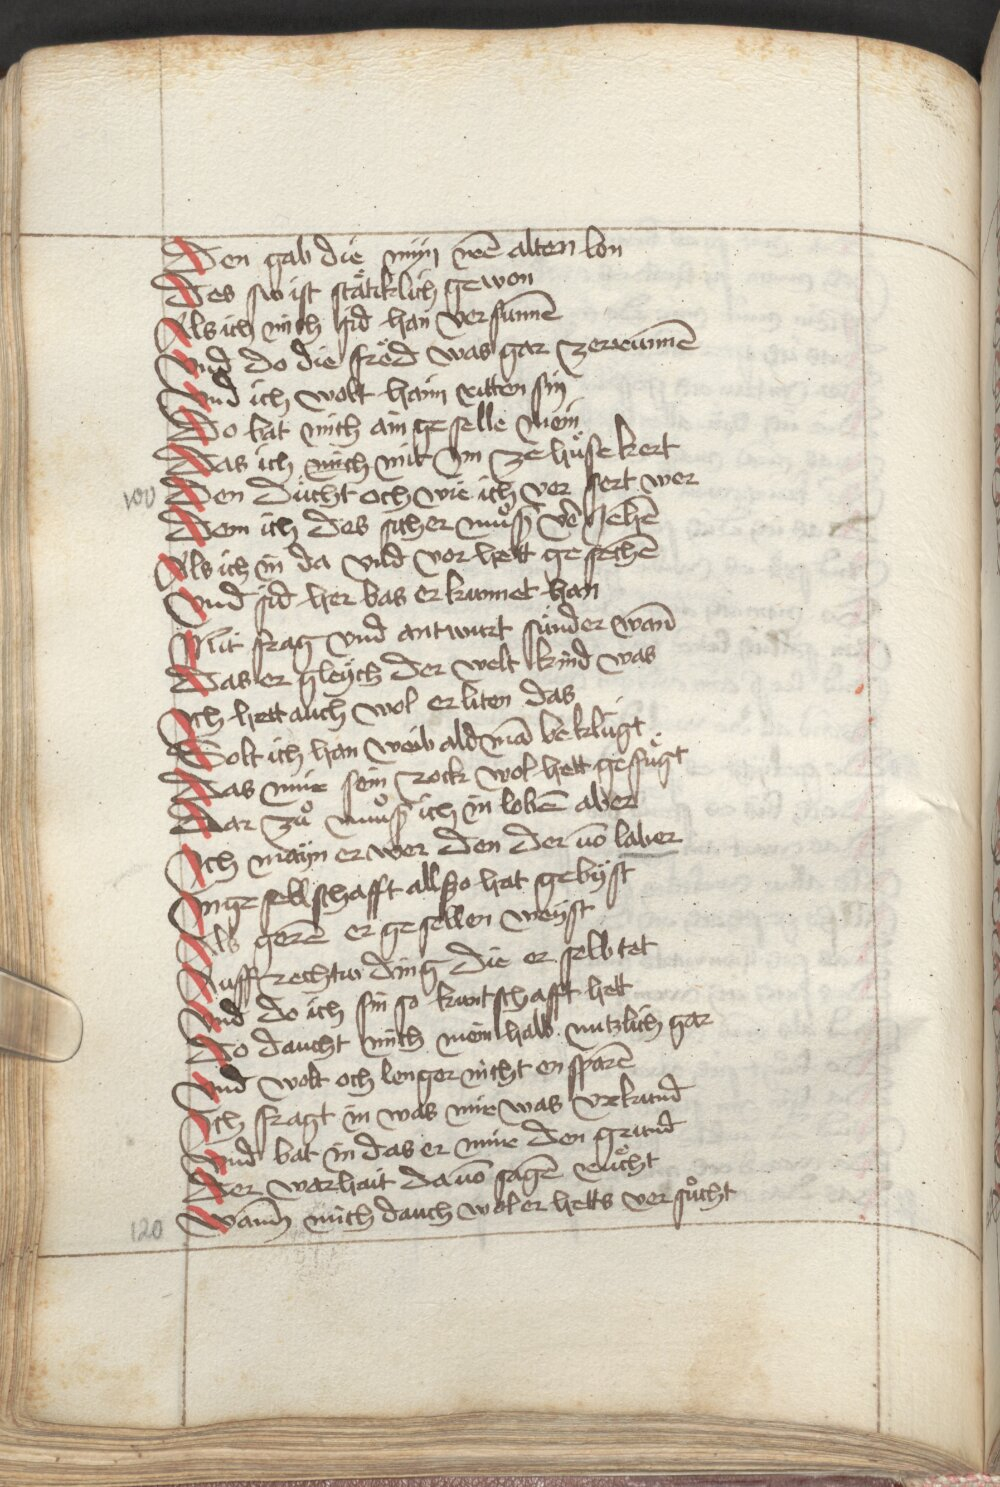 Den gab die min irē alten lon
Des sy ist stätiklich gewon
Als ich mich sid han versunnē
Vnd do die fröd was gar zerrunnē
Vnd ich wolt haim ritten sin
Do bat mich ain geselle mein
Das ich mich mit im ze huse kert
100 Den ducht och wie ich ver sert wer
Dem ich des sicher muͦß v̄ iehē
Als ich in da vnd vor hett gesechē
Vnd sid her bas erkunnet han
Mit frag vnd antwurt sunder wan̄
Das er gleych der welt kind was
Ich hett auch wol erliten das
Solt ich han weib ald mā beklugt
Das mir sein rock wol hett gefuͦgt
Dar zuͦ muͦß ich in lobē aber
Ich mayn er wer den der vō laber
In gesellschafft allso hat gebyst
Als gerē er gesellen weyst
Auff rechtu ding die er selb tet
Vnd do ich sin so kuntschafft hett
Do daucht mich mein halb nutzlich gar
Vnd wolt och lenger nicht en sparē
Ich fragt in was mir was vrkund
Vnd bat in das er mir den grund
Der warhait da vō sagē ruͦcht
120 Wann mich dauch wol er hetts ver suͦcht